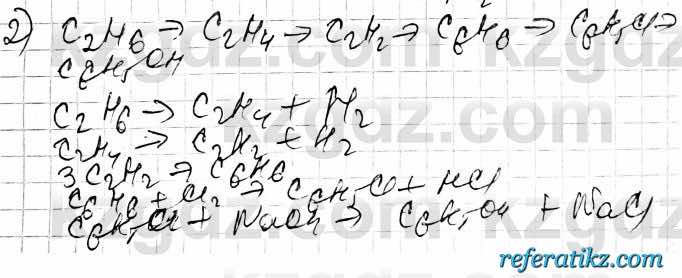 2) C₂H₆ → C₂H₄ → C₂H₂ → C₆H₆ → C₆H₅Cl →
C₆H₅OH
C₂H₆ → C₂H₄ + H₂
C₂H₄ → C₂H₂ + H₂
3C₂H₂ → C₆H₆
C₆H₆ + Cl₂ → C₆H₅Cl + HCl
C₆H₅Cl + NaOH → C₆H₅OH + NaCl
referatikz.com